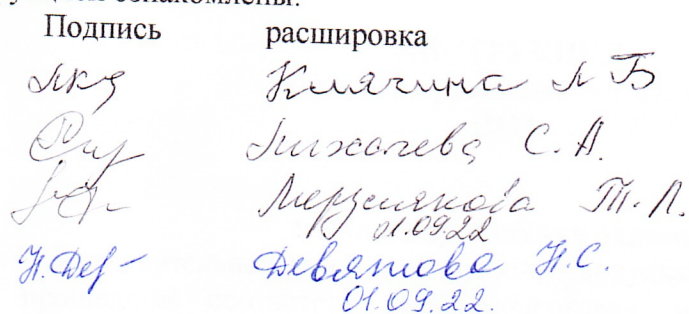 ознакомлены.
Подпись расшировка
Клячина Л Б
Лихачева С. А.
Т. Л.
01.09.22
Н. Дев- Девятова Н.С.
01.09.22.